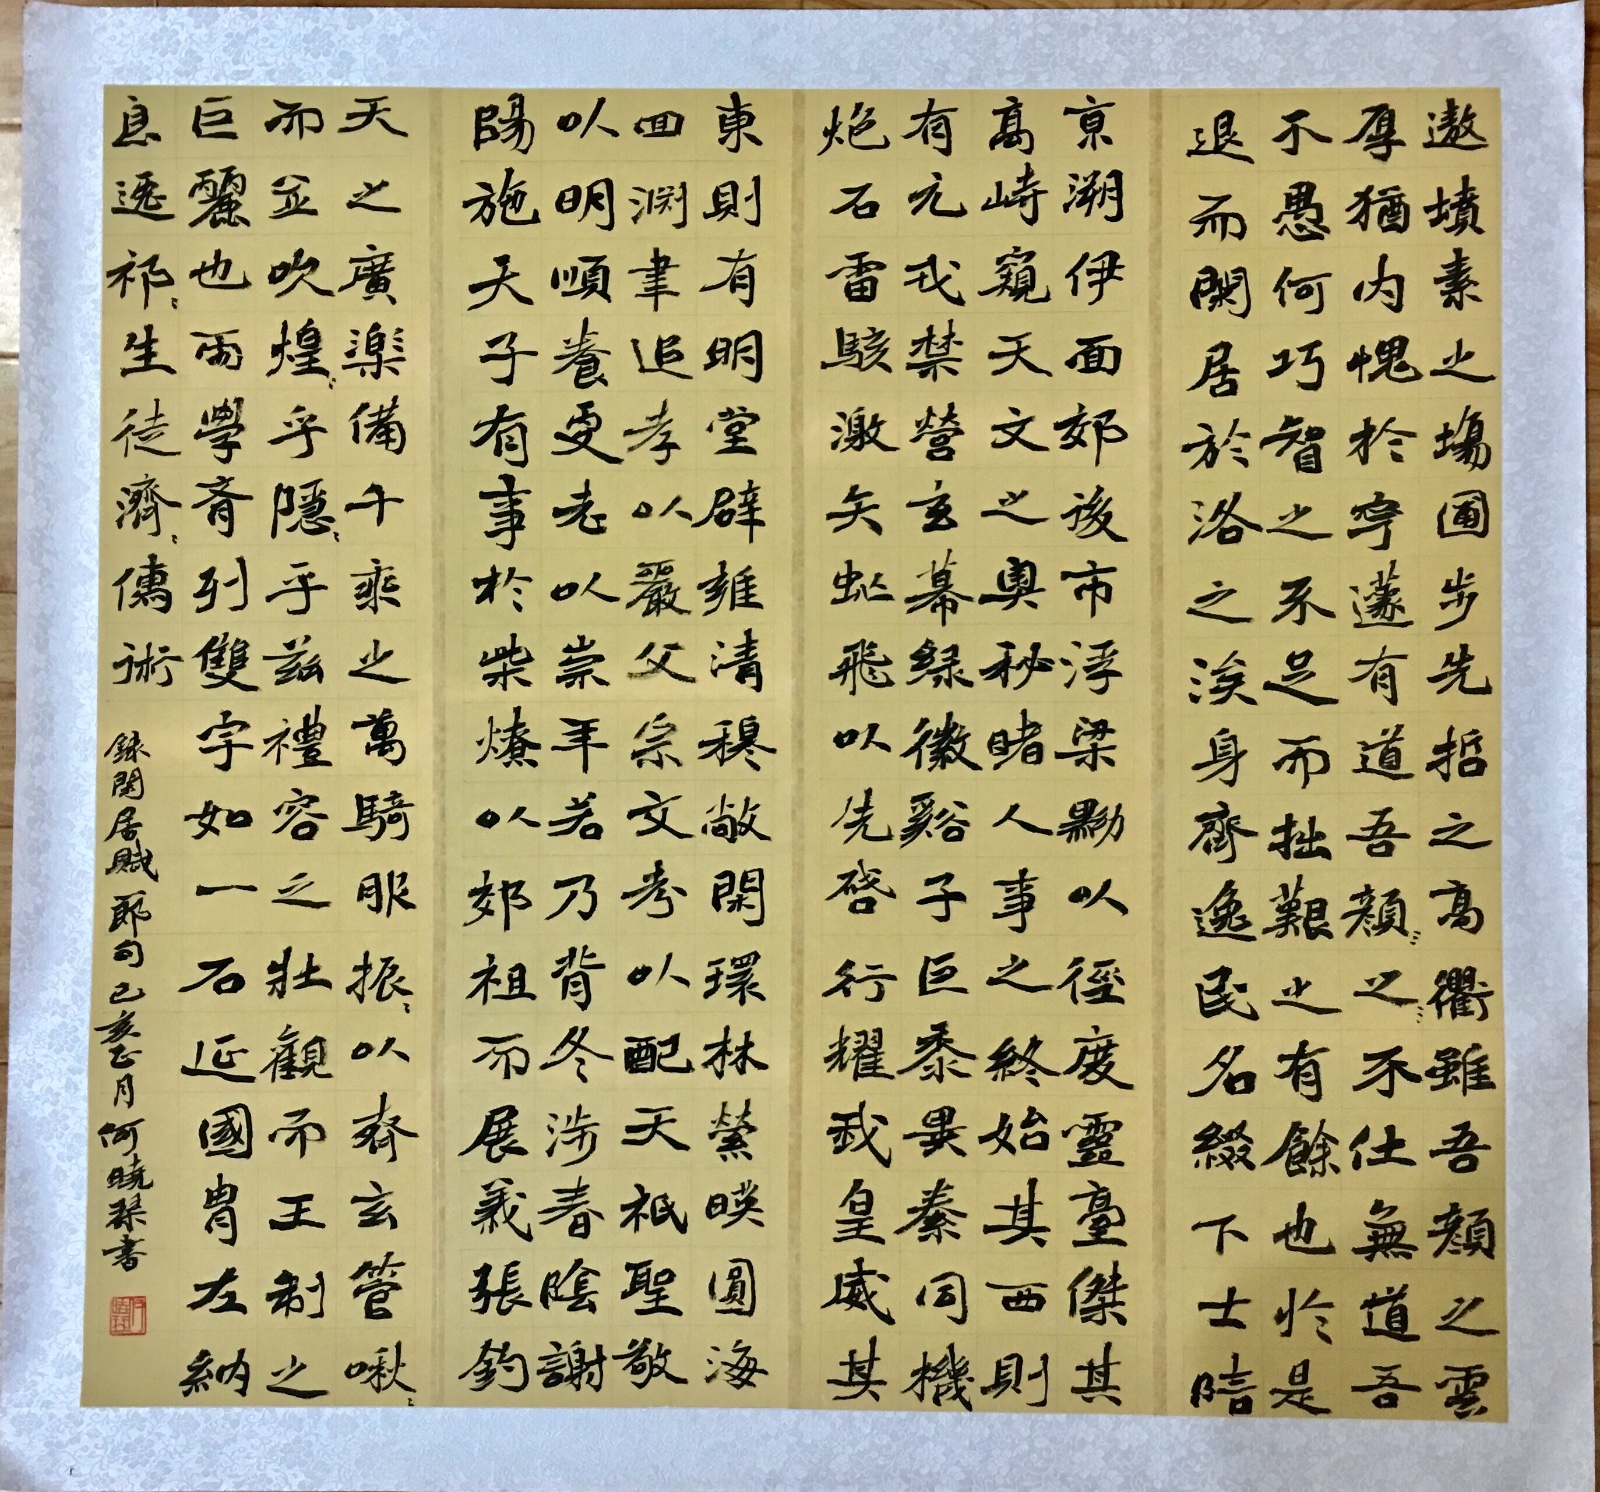 遨墳素之場圃步先哲之高衢雖吾顏之雲
厚猶內愧於寧蘧有道吾顏之不仕無道吾
不愚何巧智之不足而拙艱之有餘也於是
退而閑居於洛之涘身齊逸民名綴下士陪
京溯伊面郊後市浮梁黝以徑度靈臺傑其
高峙窺天文之奧秘睹人事之終始其西則
有元戎禁營玄幕綠徽谿子巨黍異絭同機
炮石雷駭激矢虻飛以先啓行耀我皇威其
東則有明堂辟雍清穆敞閑環林縈暎圓海
回淵聿追孝以嚴父宗文考以配天祇聖敬
以明順養更老以崇年若乃背冬涉春陰謝
陽施天子有事於柴燎以郊祖而展義張鈞
天之廣樂備千乘之萬騎服振〻以齊玄管啾〻
而並吹煌〻乎隱〻乎茲禮容之壯觀而王制之
巨麗也兩學齊列雙宇如一右延國胄左納
良逸祁〻生徒濟〻儒術
錄閑居賦節句己亥正月何曉琹書